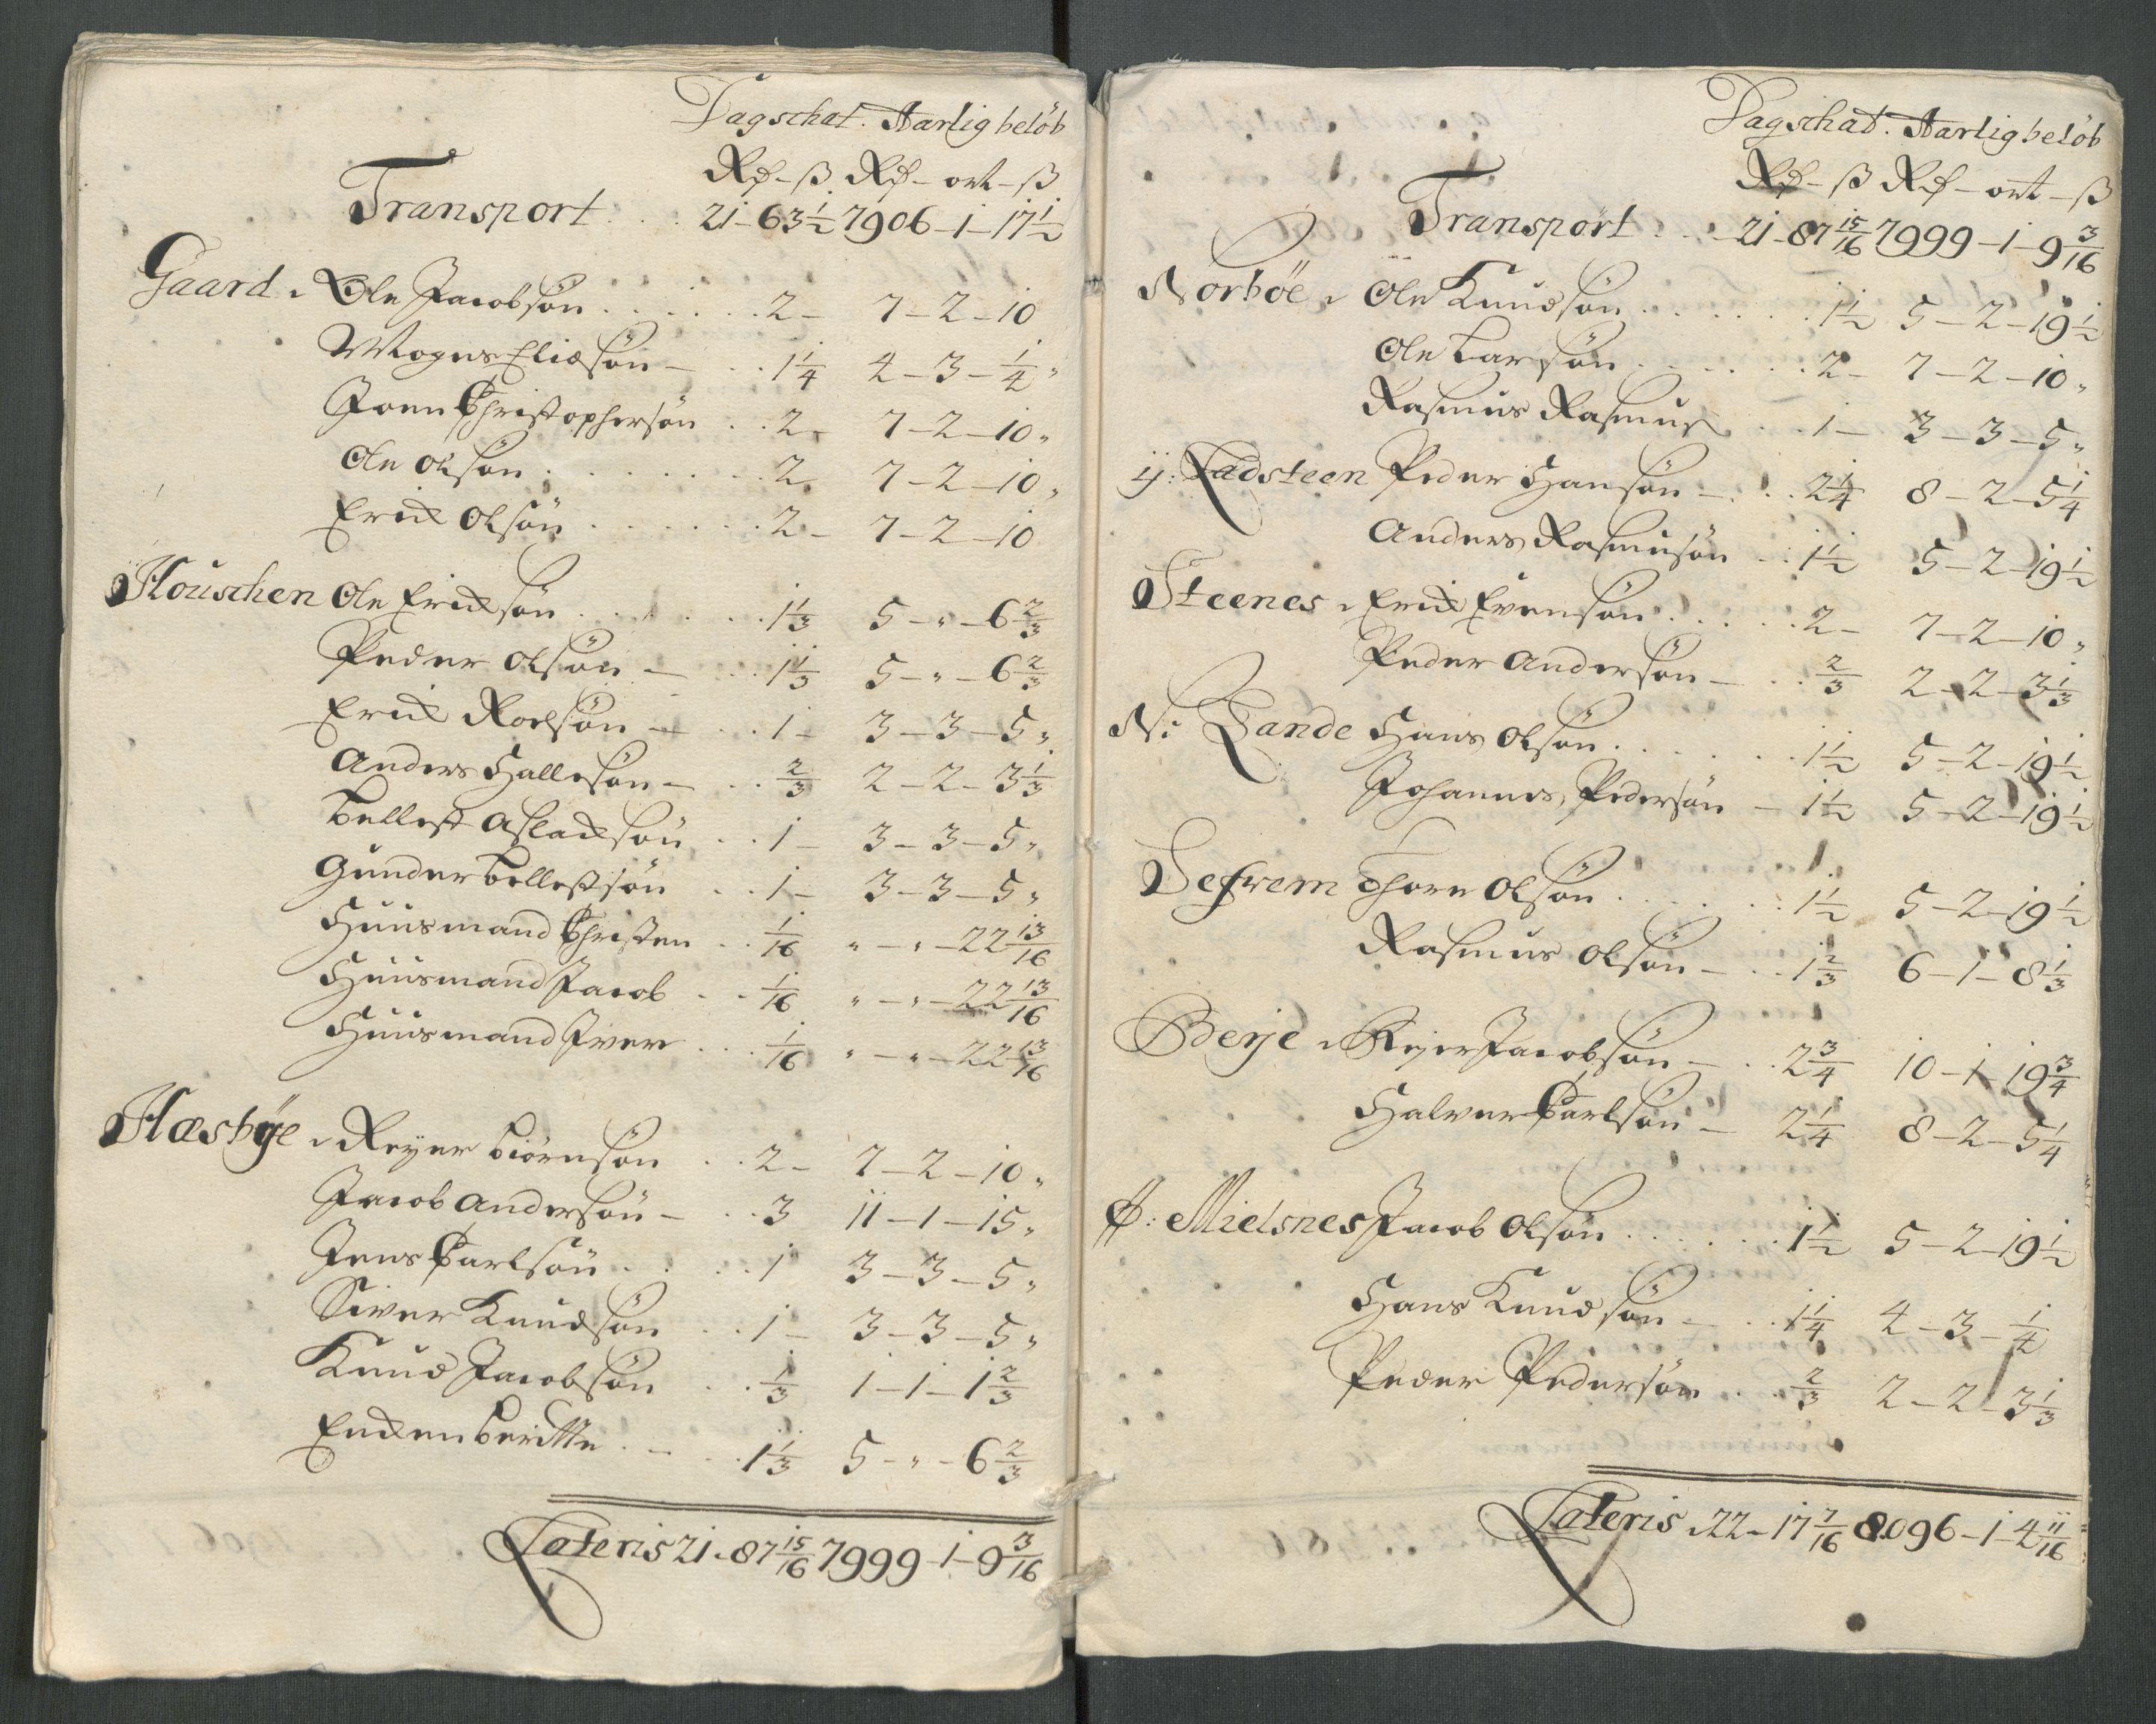 Dagschat. Aarlig beløb
Rd - ß Rd - ort - ß
Transport . . 21 - 63 1/2 7906 - 1 - 17 1/2
Gaard . Ole Jacobsøn . . . . . . 2 - 7 - 2 - 10
Mogns Eliæsøn - . . 1 1/4 4 - 3 - 1/4 "
Joen Christophersøn . . 2 - 7 - 2 - 10 "
Ole Olsøn . . . . . . . 2 7 - 2 - 10 "
Erich Olsøn . . . . . . 2 - 7 - 2 - 10
Houschen Ole Erichsøn . . . . . . 1 1/3 5 - " - 6 2/3
Peder Olsøn - . . . 1 1/3 5 - " - 6 2/3
Erich Roelsøn - . . 1 - 3 - 3 - 5 "
Anders Hallesøn - . . 2/3 2 - 2 - 3 1/3
Tellest Aslachsøn . . 1 - 3 - 3 - 5 "
Gunder Tellestsøn . . 1 - 3 - 3 - 5 "
Huusmand Christen . . 1/16 " - " - 22 13/16
Huusmand Jacob . . . 1/16 " - " - 22 13/16
Huusmand Iver . . . 1/16 " - " - 22 13/16
Hæsbÿe . Reyer Biörnsøn . . 2 - 7 - 2 - 10 "
Jacob Andersøn - . . 3 11 - 1 - 15 "
Jens Carlsøn . . . . 1 3 - 3 - 5 "
Siver Knudsøn . . 1 - 3 - 3 - 5 "
Knud Jacobsøn . . 1/3 1 - 1 - 1 2/3
Enchen Beritte . - . . 1 1/3 5 - " - 6 2/3
Lateris 21 - 87 15/16 7999 - 1 - 9 3/16
Dagschat. Aarlig beløb
Rd - ß Rd - ort - ß
Transport . . . 21 - 87 15/16 7999 - 1 - 9 3/16
Norböe . Ole Knudsøn . . . . . . 1 1/2 5 - 2 - 19 1/2
Ole Larsøn . . . . . . 2 - 7 - 2 - 10 "
Rasmus Rasmus . . 1 - 3 - 3 - 5 "
ÿ: Ladsteen Peder Hansøn - . . . 2 1/4 8 - 2 - 5 1/4
Anders Rasmusøn . . 1 1/2 5 - 2 - 19 1/2
Steenes . Erich Evensøn . . . . . 2 - 7 - 2 - 10 "
Peder Andersøn - . . 2/3 2 - 2 - 3 1/3
N: Sande Hans Olsøn . . . . . . 1 1/2 5 - 2 - 19 1/2
Johannes Pedersøn - 1 1/2 5 - 2 - 19 1/2
Sefrem Thore Olsøn . . . . . . 1 1/2 5 - 2 - 19 1/2
Rasmus Olsøn - . . 1 2/3 6 - 1 - 8 1/3
Berje . Reyer Jacobsøn - . . 2 3/4 10 - 1 - 19 3/4
Halver Carlsøn - 2 1/4 8 - 2 - 5 1/4
Mielsnes Jacob Olsøn . . . . . . 1 1/2 5 - 2 - 19 1/2
Hans Knudsøn - . . 1 1/4 4 - 3 - 1/4
Peder Pedersøn . . 2/3 2 - 2 - 3 1/3
Lateris . 22 - 17 7/16 8096 - 1 - 4 11/16